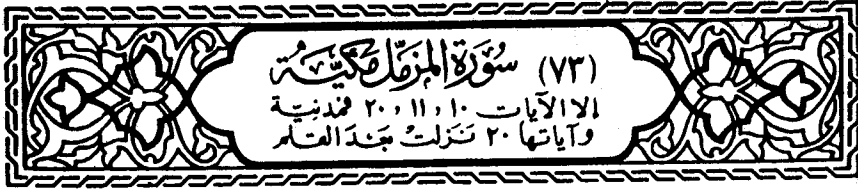 (٧٣) سُورَة المزمّل مَكيّة
إلا الآيات ١٠ و ١١ و ٢٠ فمدنيّة
وآياتها ٢٠ نَزلتْ بَعدَ القلم